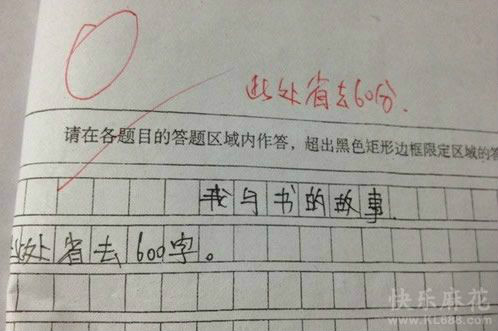 此处省去60分.
请在各题目的答题区域内作答，超出黑色矩形边框限定区域的答
我与书的故事
此处省去600字。
快乐麻花
www.KL688.com